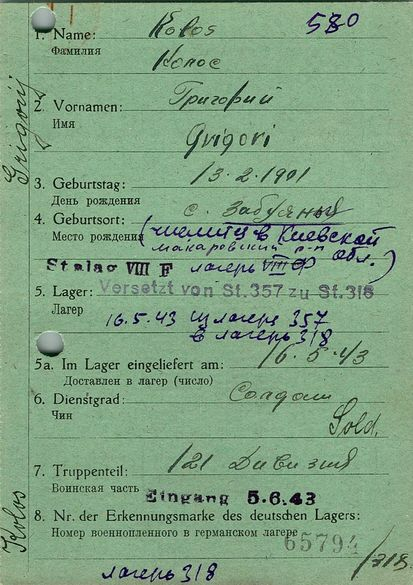 580
1. Name: Kolos
Фамилия Колос
2. Vornamen: Григорий
Имя Grigori
13.2.1901
3. Geburtstag:
День рождения
с. Забуяные
4. Geburtsort: (числится в Киевской
Место рождения макаровский р-н обл.)
Stalag VIII F лагерь VIII Ф
Versetzt von St.357 zu St.318
5. Lager:
Лагерь
16.5.43 из лагеря 357
в лагерь 318
16.5.43
5a. Im Lager eingeliefert am:
Доставлен в лагер (число)
6. Dienstgrad: Солдат
Чин Sold.
121 Дивизия
7. Truppenteil:
Воинская часть Eingang 5.6.43
8. Nr. der Erkennungsmarke des deutschen Lagers:
Номер военнопленного в германском лагере
65794 /318
лагерь 318
Grigorij
Kolos